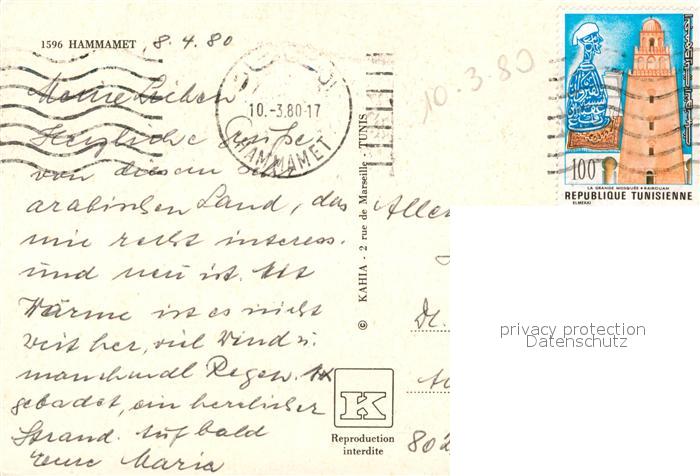 1596 HAMMAMET 8.4.80
Meine Lieben
Herzliche Grüße
von diesem
arabischen Land, das
mir recht interess.
und neu ist. Mit
Wärme ist es nicht
weit her, viel Wind u.
manchmal Regen.
gebadet, ein herrlicher
Strand. Auf bald
Eure Maria
10.-3.80-17
HAMMAMET
10.3.80
© KAHIA - 2 rue de Marseille - TUNIS
100
LA GRANDE MOSQUÉE • KAIROUAN
REPUBLIQUE TUNISIENNE
ELMEKKI
K
Reproduction
interdite
privacy protection
Datenschutz